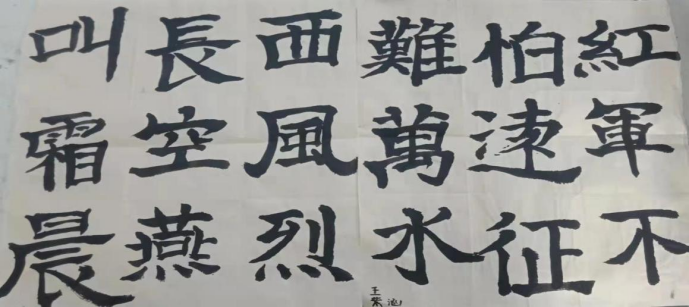 紅軍不
怕遠征
難萬水
西風烈
長空燕
叫霜晨
王紫